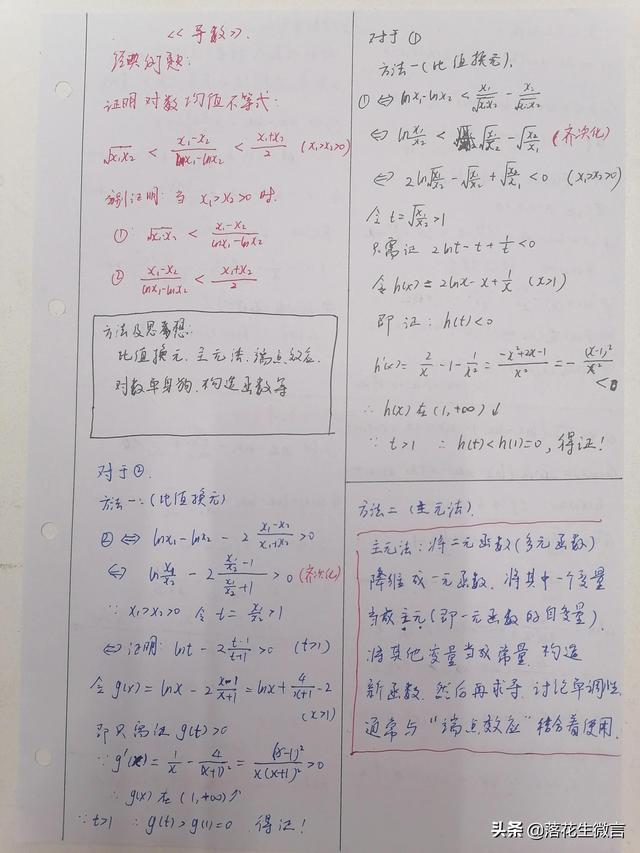 <<导数>>.
经典例题:
证明对数均值不等式:
√x₁x₂ < (x₁-x₂)/(lnx₁-lnx₂) < (x₁+x₂)/2 (x₁>x₂>0)
分别证明: 当 x₁>x₂>0 时.
① √x₁x₂ < (x₁-x₂)/(lnx₁-lnx₂)
② (x₁-x₂)/(lnx₁-lnx₂) < (x₁+x₂)/2
方法及思想:
比值换元. 主元法. 端点效应.
对数单身狗. 构造函数等
对于②.
方法一:(比值换元)
② ⇔ lnx₁-lnx₂ - 2 (x₁-x₂)/(x₁+x₂) >0
⇔ ln(x₁/x₂) - 2 (x₁/x₂ -1)/(x₁/x₂ +1) >0 (齐次化)
∵ x₁>x₂>0 令 t= x₁/x₂ >1
⇔证明: lnt - 2 (t-1)/(t+1) >0 (t>1)
令 g(x)= lnx - 2 (x-1)/(x+1) = lnx + 4/(x+1) - 2
(x>1)
即只需证 g(t)>0
∵ g'(x)= 1/x - 4/(x+1)² = (x-1)²/(x(x+1)²) >0
∴ g(x) 在 (1,+∞)↑
∵ t>1 ∴ g(t)>g(1)=0 得证!
对于①
方法一(比值换元).
① ⇔ lnx₁-lnx₂ < x₁/√x₁x₂ - x₂/√x₁x₂
⇔ ln(x₁/x₂) < √(x₁/x₂) - √(x₂/x₁) (齐次化)
⇔ 2ln√(x₁/x₂) - √(x₁/x₂) + √(x₂/x₁) <0 (x₁>x₂>0)
令 t=√(x₁/x₂) >1
只需证 2lnt - t + 1/t <0
令 h(x) = 2lnx - x + 1/x (x>1)
即证: h(t)<0
h'(x)= 2/x - 1 - 1/x² = (-x²+2x-1)/x² = - (x-1)²/x²
<0
∴ h(x) 在 (1,+∞)↓
∵ t>1 ∴ h(t)<h(1)=0, 得证!
方法二 (主元法).
主元法: 将二元函数(多元函数)
降维成一元函数. 将其中一个变量
当成主元(即一元函数的自变量).
将其他变量当成常量. 构造
新函数. 然后再求导. 讨论单调性.
通常与“端点效应”结合着使用.
头条 @落花生微言